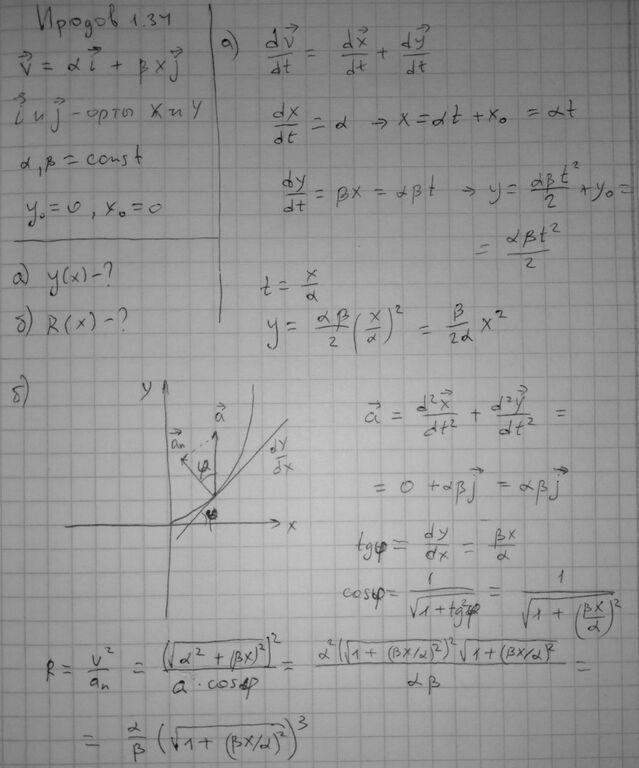 Иродов 1.34
v⃗ = αi⃗ + βxj⃗
i⃗ и j⃗ - орты X и Y
α, β = const
y₀ = 0, x₀ = 0
а) y(x) - ?
б) R(x) - ?
а) dv⃗/dt = dx⃗/dt + dy⃗/dt
dx/dt = α → x = αt + x₀ = αt
dy/dt = βx = αβt → y = αβt²/2 + y₀ =
= αβt²/2
t = x/α
y = αβ/2 (x/α)² = β/2α x²
б)
y
a⃗
a⃗n
φ
dy/dx
φ
x
a⃗ = d²x⃗/dt² + d²y⃗/dt² =
= 0 + αβj⃗ = αβj⃗
tgφ = dy/dx = βx/α
cosφ = 1/√(1 + tg²φ) = 1/√(1 + (βx/α)²)
R = v²/an = (√(α² + (βx)²))²/(a · cosφ) = α²(√(1 + (βx/α)²))²√(1 + (βx/α)²)/αβ =
= α/β (√(1 + (βx/α)²))³